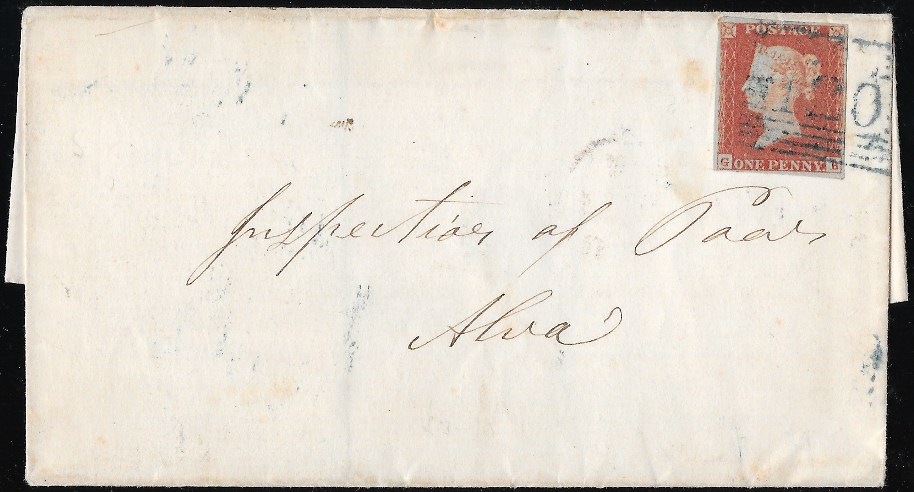 POSTAGE
G ONE PENNY. G
Inspector of Poor
Alva